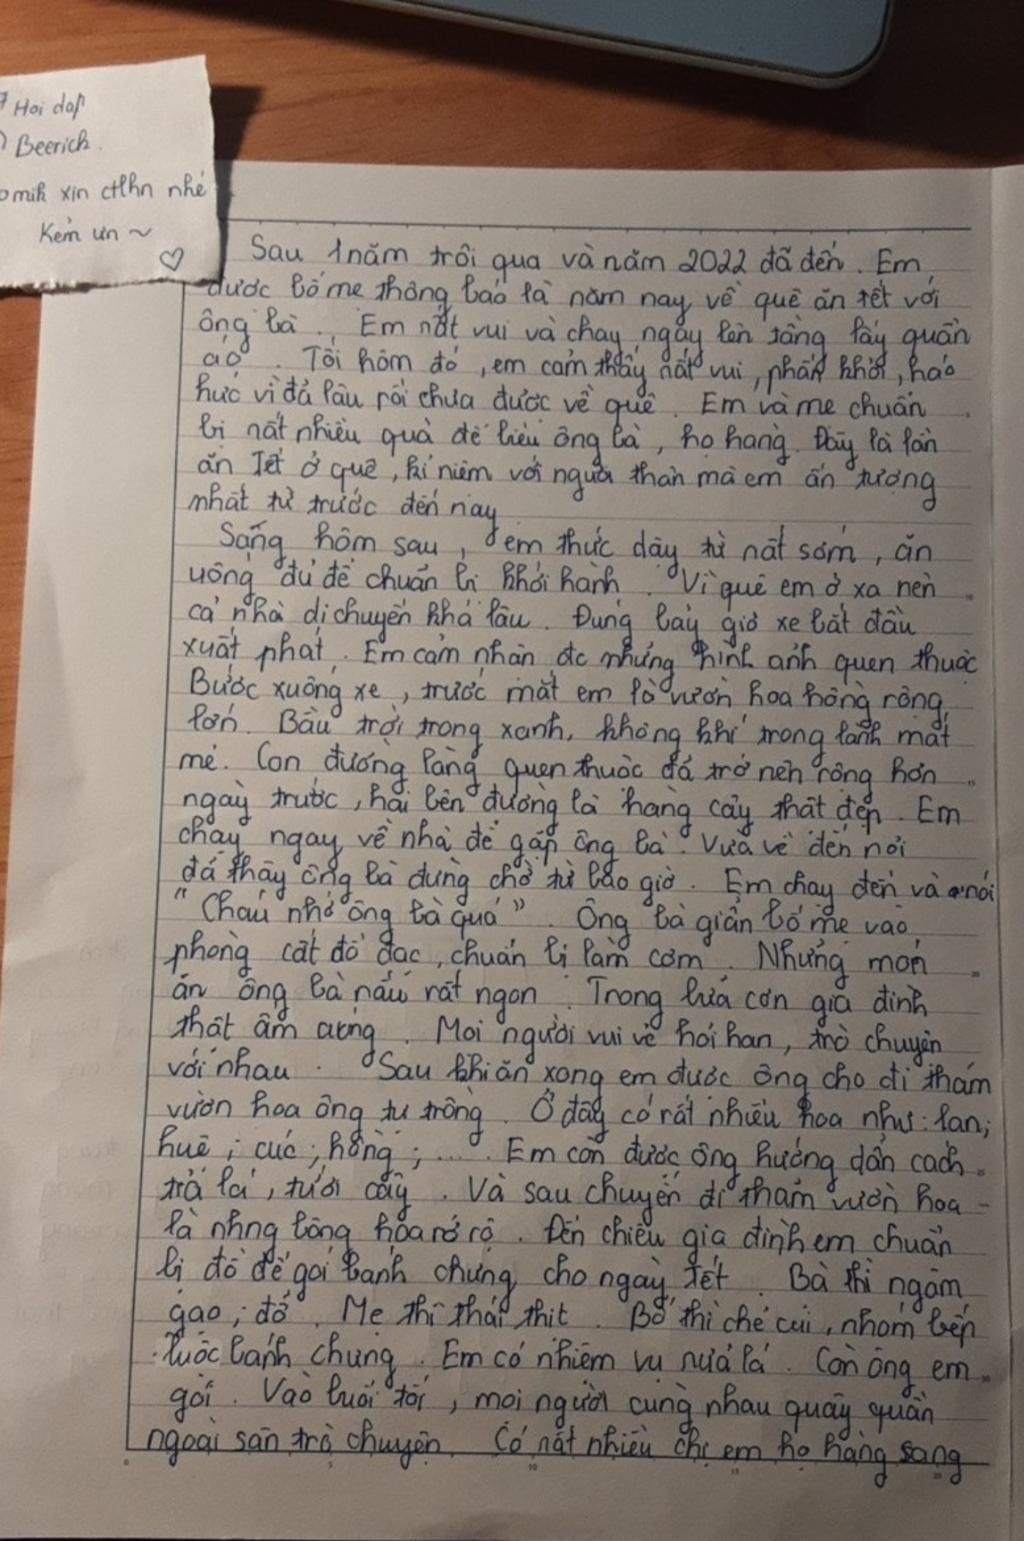 Hoi dap
Beerich.
mik xin ctlhn nhé
Kem ưn ~
Sau 1 năm trôi qua và năm 2022 đã đến. Em
được bố mẹ thông báo là năm nay về quê ăn tết với
ông bà. Em nất vui và chạy ngay lên tầng lấy quần
áo. Tối hôm đó, em cảm thấy nất vui, phấn khởi, háo
hức vì đã lâu rồi chưa được về quê. Em và mẹ chuẩn
bị nất nhiều quà để biếu ông bà, họ hàng. Đây là lần
ăn Tết ở quê, kỉ niệm với người thân mà em ấn tượng
nhất từ trước đến nay
Sáng hôm sau, em thức dậy từ nất sớm, ăn
uống đủ để chuẩn bị khởi hành. Vì quê em ở xa nên
cả nhà di chuyển khá lâu. Đúng bảy giờ xe bắt đầu
xuất phát. Em cảm nhận đc những hình ảnh quen thuộc
Bước xuống xe, trước mặt em là vườn hoa hồng rộng
lớn. Bầu trời trong xanh, không khí trong lành mát
mẻ. Con đường làng quen thuộc đã trở nên rộng hơn
ngày trước, hai bên đường là hàng cây thật đẹp. Em
chạy ngay về nhà để gặp ông bà. Vừa về đến nơi
đã thấy ông bà đứng chờ từ bao giờ. Em chạy đến và nói
"Cháu nhớ ông bà quá". Ông bà giản bố mẹ vào
phòng cất đồ đạc, chuẩn bị làm cơm. Những món
ăn ông bà nấu rất ngon. Trong bữa cơn gia đình
thật ấm cúng. Mọi người vui vẻ hỏi han, trò chuyện
với nhau. Sau khi ăn xong em được ông cho đi thăm
vườn hoa ông tự trồng. Ở đây có rất nhiều hoa như: lan;
huệ; cúc; hồng; .... Em còn được ông hướng dẫn cách
trả lá, tưới cây. Và sau chuyến đi thăm vườn hoa
là nhng bông hoa rớ rộ. Đến chiều gia đình em chuẩn
bị đồ để gói bánh chưng cho ngày tết. Bà thì ngâm
gạo; đỗ. Mẹ thì thái thịt. Bố thì chẻ củi, nhóm bếp
luộc bánh chưng. Em có nhiệm vụ nửá lá. Còn ông em
gói. Vào buổi tối, mọi người cùng nhau quây quần
ngoài sân trò chuyện. Có nất nhiều chị em họ hàng sang